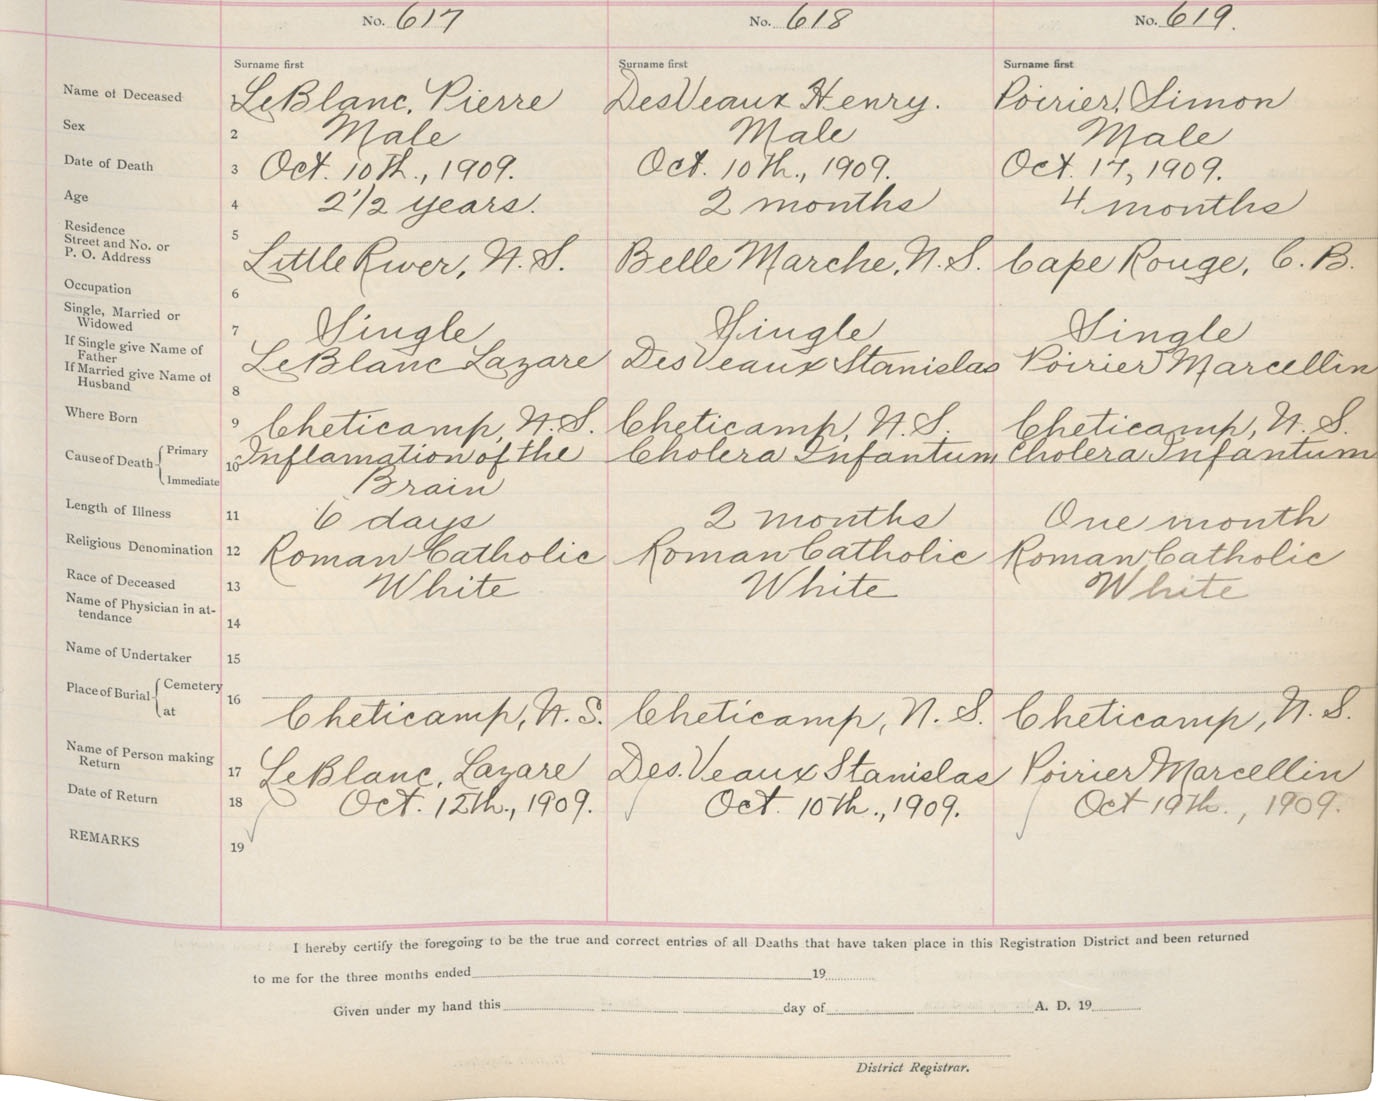 No. 617 No. 618 No. 619.
Surname first Surname first Surname first
Name of Deceased 1 LeBlanc, Pierre DesVeaux Henry. Poirier, Simon
Sex 2 Male Male Male
Date of Death 3 Oct. 10th., 1909. Oct. 10th., 1909. Oct. 17, 1909.
Age 4 2 1/2 years. 2 months 4 months
Residence
Street and No. or
P. O. Address 5 Little River, N. S. Belle Marche, N. S. Cape Rouge, C. B.
Occupation 6
Single, Married or
Widowed 7 Single Single Single
If Single give Name of
Father LeBlanc Lazare DesVeaux Stanislas Poirier Marcellin
If Married give Name of
Husband 8
Where Born 9 Cheticamp, N. S. Cheticamp, N. S. Cheticamp, N. S.
Cause of Death Primary 10 Inflamation of the Cholera Infantum Cholera Infantum
Immediate Brain
Length of Illness 11 6 days 2 months One month
Religious Denomination 12 Roman Catholic Roman Catholic Roman Catholic
Race of Deceased 13 White White White
Name of Physician in at-
tendance 14
Name of Undertaker 15
Place of Burial Cemetery 16
at Cheticamp, N. S. Cheticamp, N. S. Cheticamp, N. S.
Name of Person making
Return 17 LeBlanc, Lazare Des.Veaux Stanislas Poirier Marcellin
Date of Return 18 Oct. 12th., 1909. Oct 10th., 1909. Oct 19th., 1909.
REMARKS 19
I hereby certify the foregoing to be the true and correct entries of all Deaths that have taken place in this Registration District and been returned
to me for the three months ended 19
Given under my hand this day of A. D. 19
District Registrar.